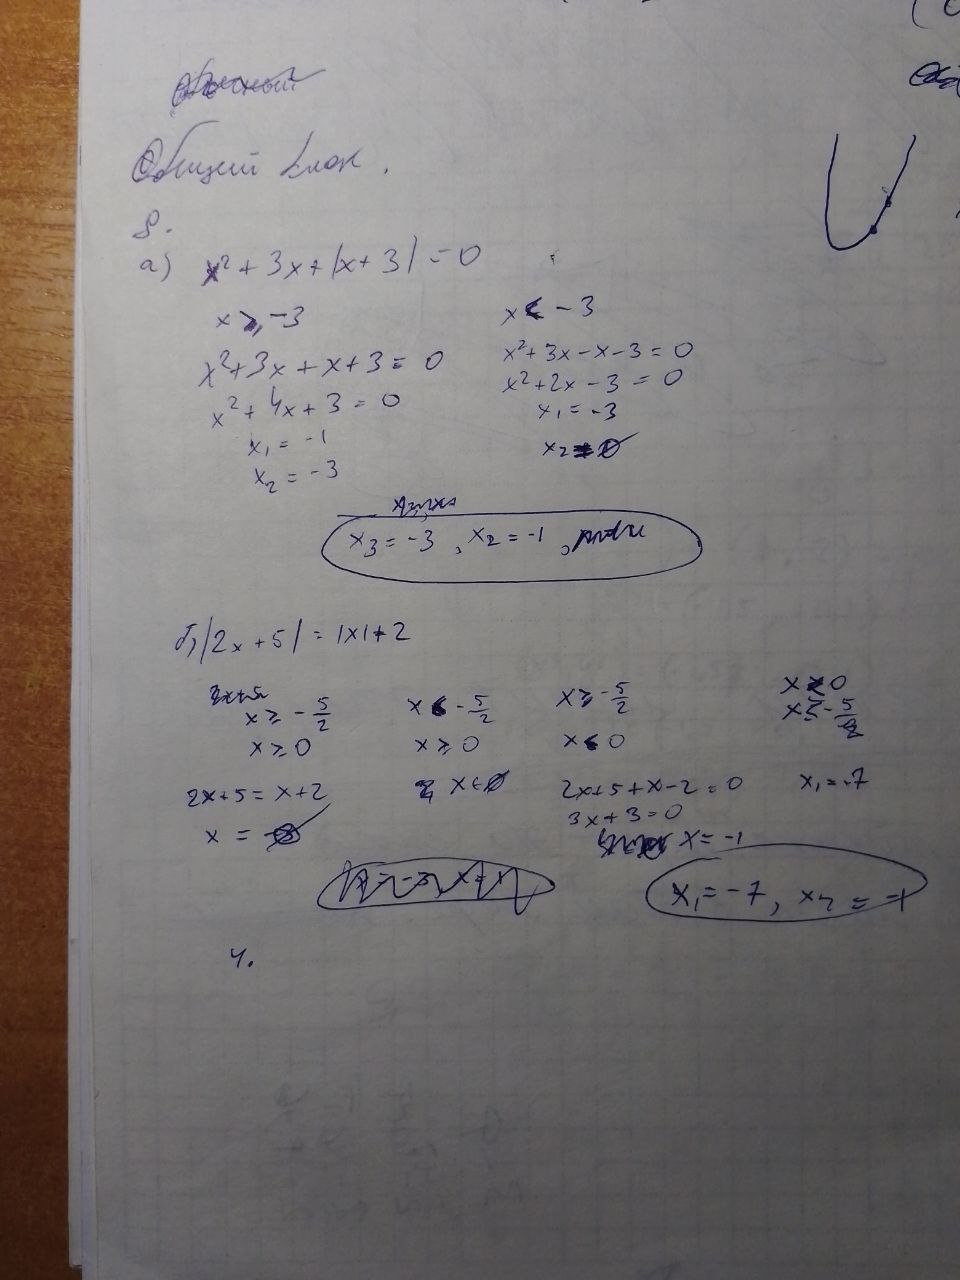 Общий блок.
8.
а) x² + 3x + |x + 3| = 0
x ≥ -3
x² + 3x + x + 3 = 0
x² + 4x + 3 = 0
x₁ = -1
x₂ = -3
x < -3
x² + 3x - x - 3 = 0
x² + 2x - 3 = 0
x₁ = -3
x₂ = ∅
x₃ = -3, x₂ = -1,
б) |2x + 5| = |x| + 2
x ≥ - 5/2
x ≥ 0
2x + 5 = x + 2
x =
x < - 5/2
x ≥ 0
x ∈ ∅
x ≥ - 5/2
x < 0
2x + 5 + x - 2 = 0
3x + 3 = 0
x = -1
x < 0
x ≤ - 5/2
x₁ = -7
x₁ = -7, x₂ = -1
4.